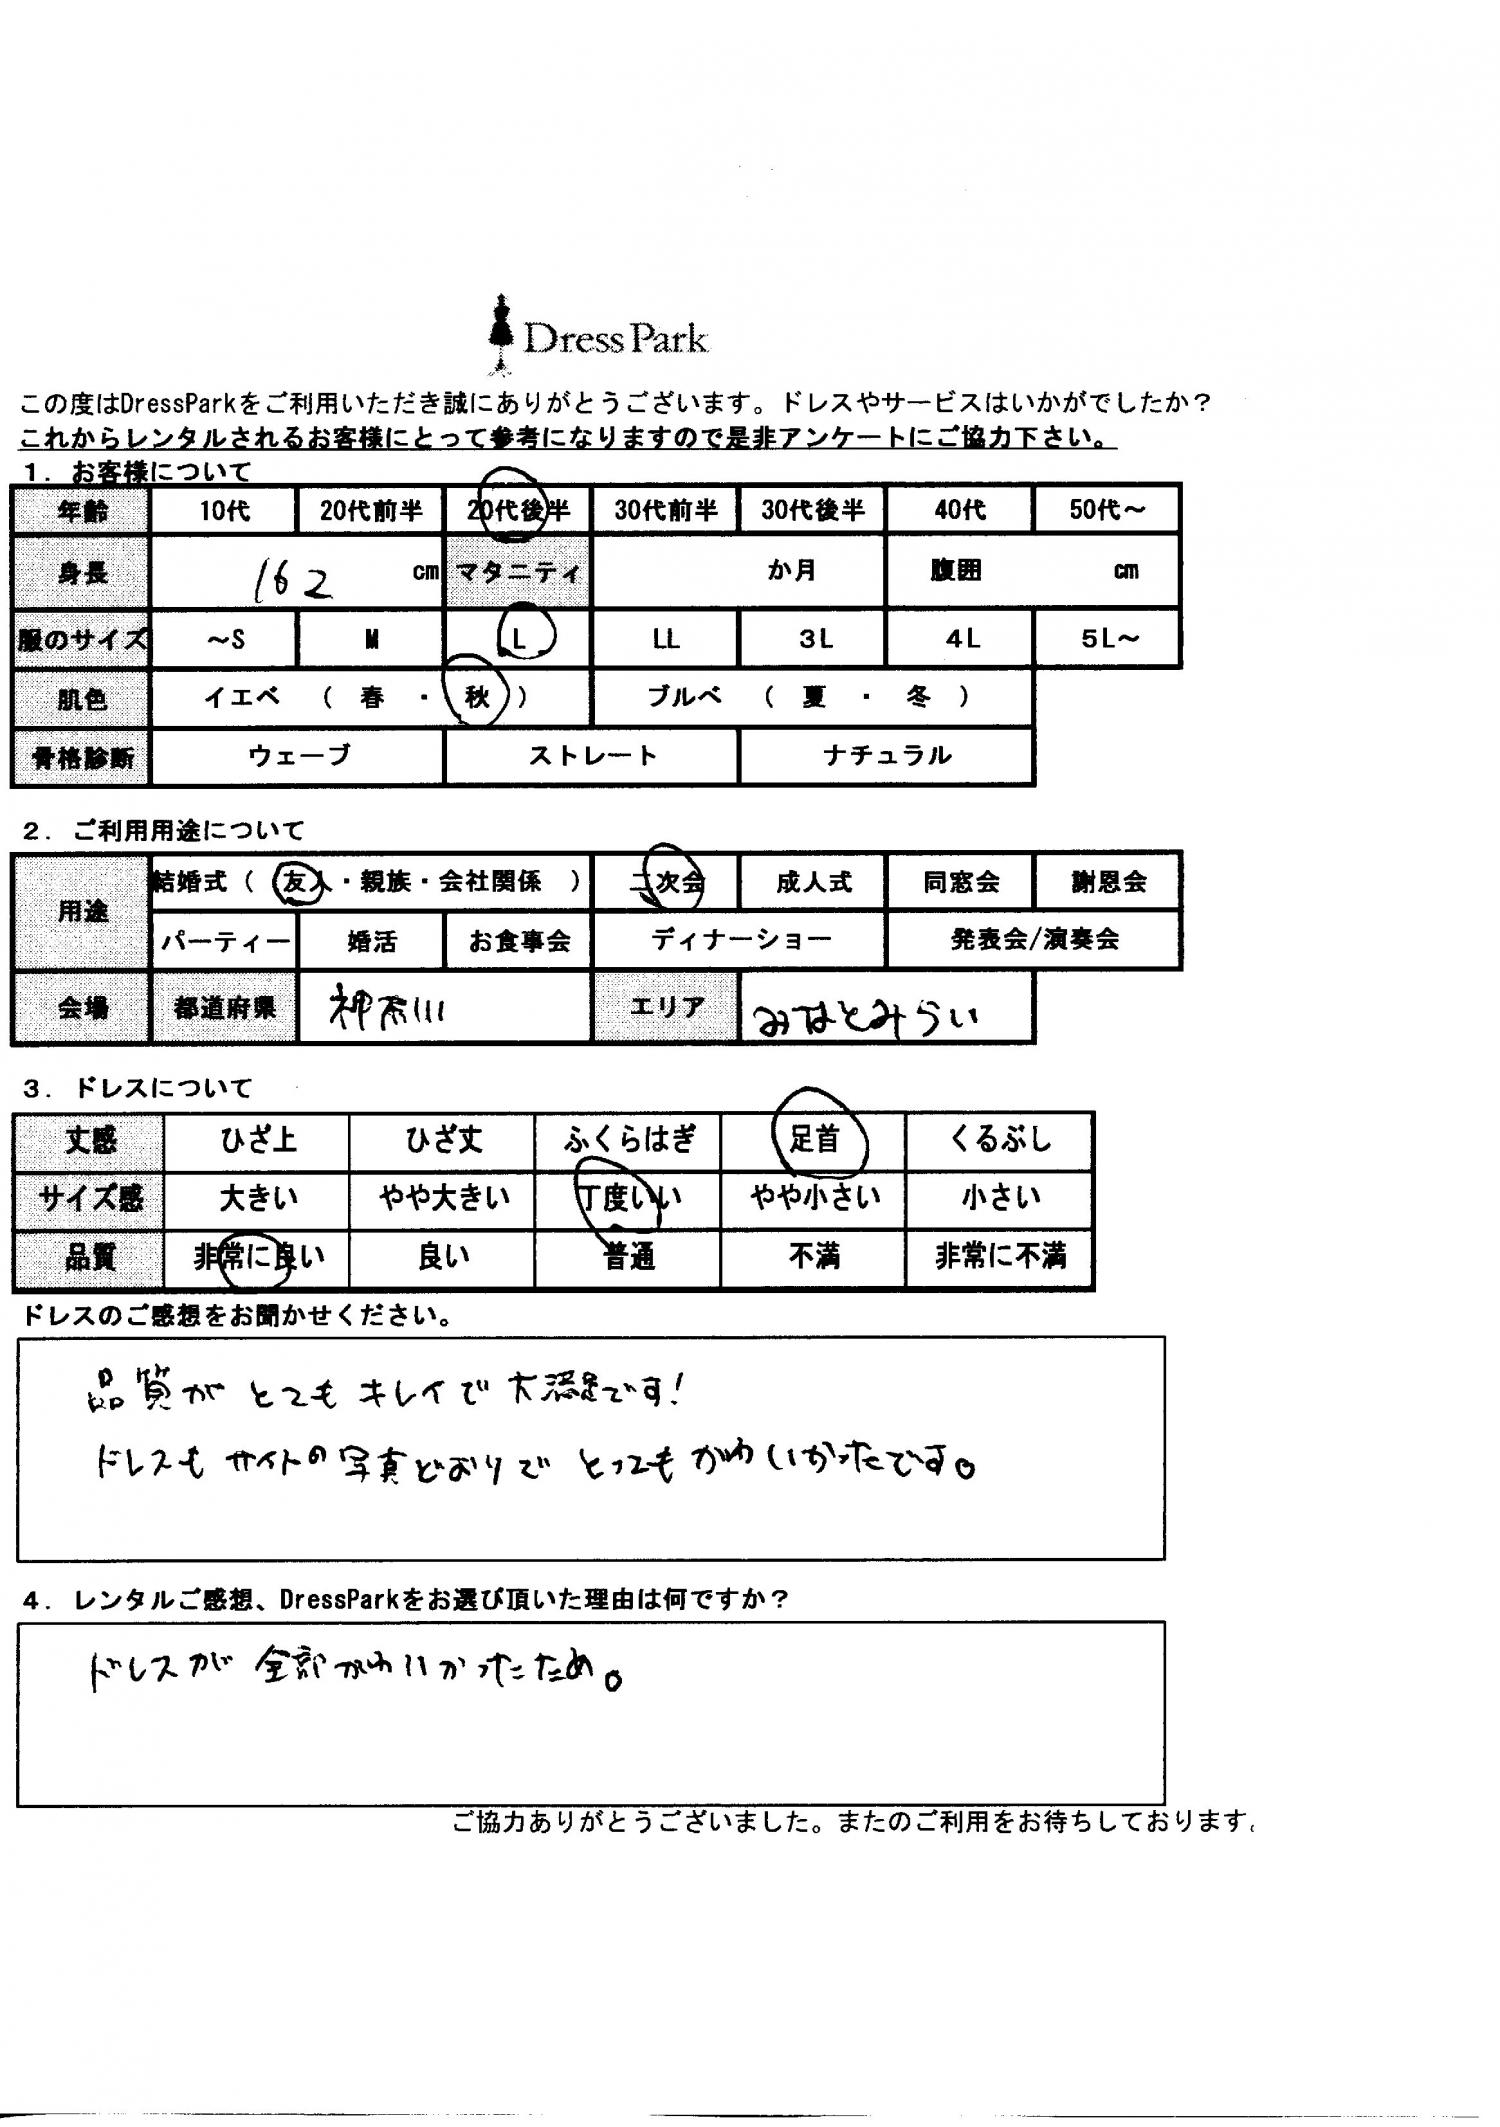 Dress Park
この度はDressParkをご利用いただき誠にありがとうございます。ドレスやサービスはいかがでしたか？
これからレンタルされるお客様にとって参考になりますので是非アンケートにご協力下さい。
1. お客様について
年齢 10代 20代前半 20代後半 30代前半 30代後半 40代 50代～
身長 162 cm マタニティ か月 腹囲 cm
服のサイズ ～S M L LL 3L 4L 5L～
肌色 イエベ （ 春 ・ 秋 ） ブルベ （ 夏 ・ 冬 ）
骨格診断 ウェーブ ストレート ナチュラル
2. ご利用用途について
用途 結婚式（ 友人・親族・会社関係 ） 二次会 成人式 同窓会 謝恩会
パーティー 婚活 お食事会 ディナーショー 発表会/演奏会
会場 都道府県 神奈川 エリア みなとみらい
3. ドレスについて
丈感 ひざ上 ひざ丈 ふくらはぎ 足首 くるぶし
サイズ感 大きい やや大きい 丁度いい やや小さい 小さい
品質 非常に良い 良い 普通 不満 非常に不満
ドレスのご感想をお聞かせください。
品質がとてもキレイで大満足です！
ドレスもサイトの写真どおりでとってもかわいかったです。
4. レンタルご感想、DressParkをお選び頂いた理由は何ですか？
ドレスが全部かわいかったため。
ご協力ありがとうございました。またのご利用をお待ちしております。